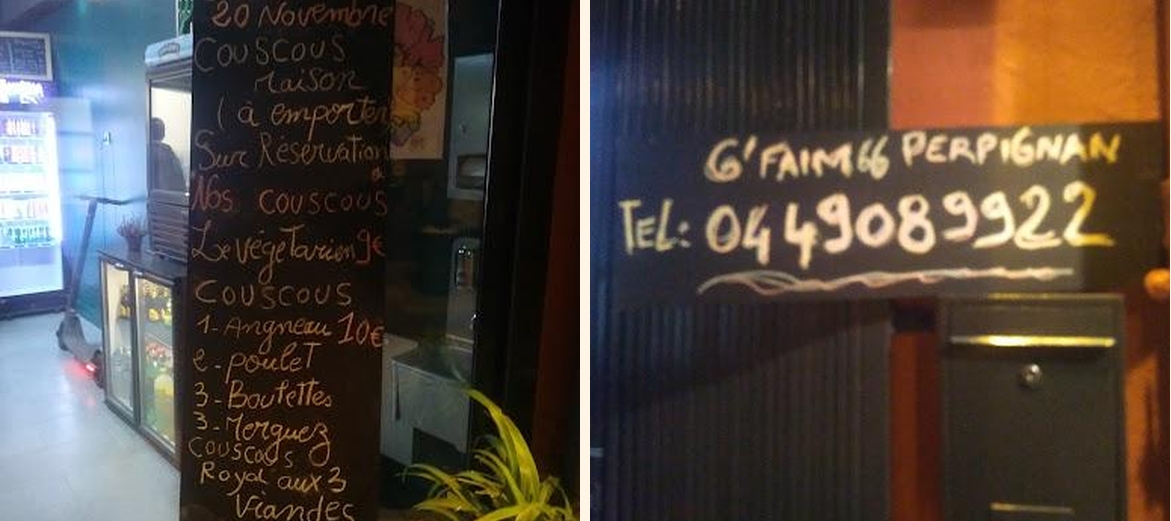 20 Novembre
Couscous
maison
(à emporter
Sur Réservation
Nos couscous
Le végétarien 9€
Couscous
1-Angneau 10€
2-poulet
3-Boulettes
3-Merguez
Couscous
Royal aux 3
Viandes
G'FAIM66 PERPIGNAN
TEL: 0449089922